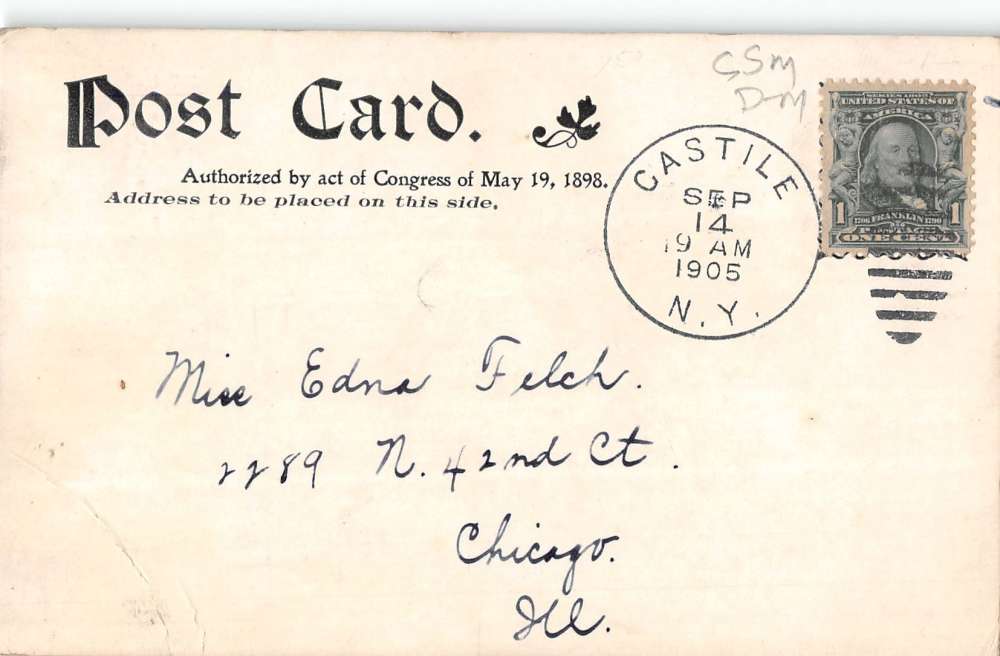 Post Card.
Authorized by act of Congress of May 19, 1898.
Address to be placed on this side.
CSM
D-M
CASTILE
SEP
14
9 AM
1905
N.Y.
SERIES 1902
UNITED STATES OF
AMERICA
1 1
1706 FRANKLIN 1790
POSTAGE
ONE CENT
Miss Edna Felch.
2289 N. 42nd Ct.
Chicago.
Ill.